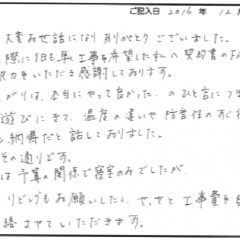 ご記入日 2016年 12月
大変お世話になりありがとうございました。
際に1日も早く工事を希望した私へ契約書のFA
力をいただき感謝しております。
がりは、本当にやって良かった。のひと言につき
遊びにきて、温度の違いや防音性のすぐれ
も納得だと話しておりました。
その通りです。
は予算の関係で寝室のみでしたが、
リビングもお願いしたく、せっせと工事費を
絡させていただきます。